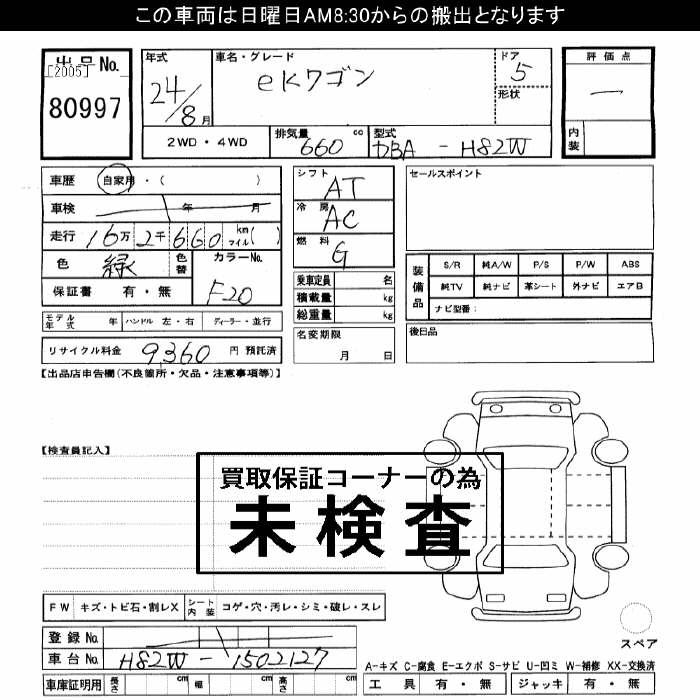 この車両は日曜日AM8:30からの搬出となります
出品No.
[2005]
80997
年式
24/8月
車名・グレード
eKワゴン
ドア
5
形状
評価点
―
内装
2WD・4WD
排気量
660
cc
型式
DBA - H82W
車歴
自家用・( )
車検
年 月
走行
16万2千660
km
マイル( )
色
緑
色替
カラーNo.
F20
保証書 有・無
シフト
AT
冷房
AC
燃料
G
乗車定員 名
積載量 kg
総重量 kg
セールスポイント
装備品
S/R 純A/W P/S P/W ABS
純TV 純ナビ 革シート 外ナビ エアB
ナビ型番:
モデル年式 年 ハンドル 左・右 ディーラー・並行
名変期限
月 日
後日品
リサイクル料金 9,360 円 預託済
【出品店申告欄(不良箇所・欠品・注意事項等)】
【検査員記入】
買取保証コーナーの為
未検査
FW キズ・トビ石・割レX シート内装 コゲ・穴・汚レ・シミ・破レ・スレ
スペア
登録No.
車台No. H82W-1502127
A-キズ C-腐食 E-エクボ S-サビ U-凹ミ W-補修 XX-交換済
車庫証明用 長さ cm 幅 cm 高さ cm
工具 有・無 ジャッキ 有・無